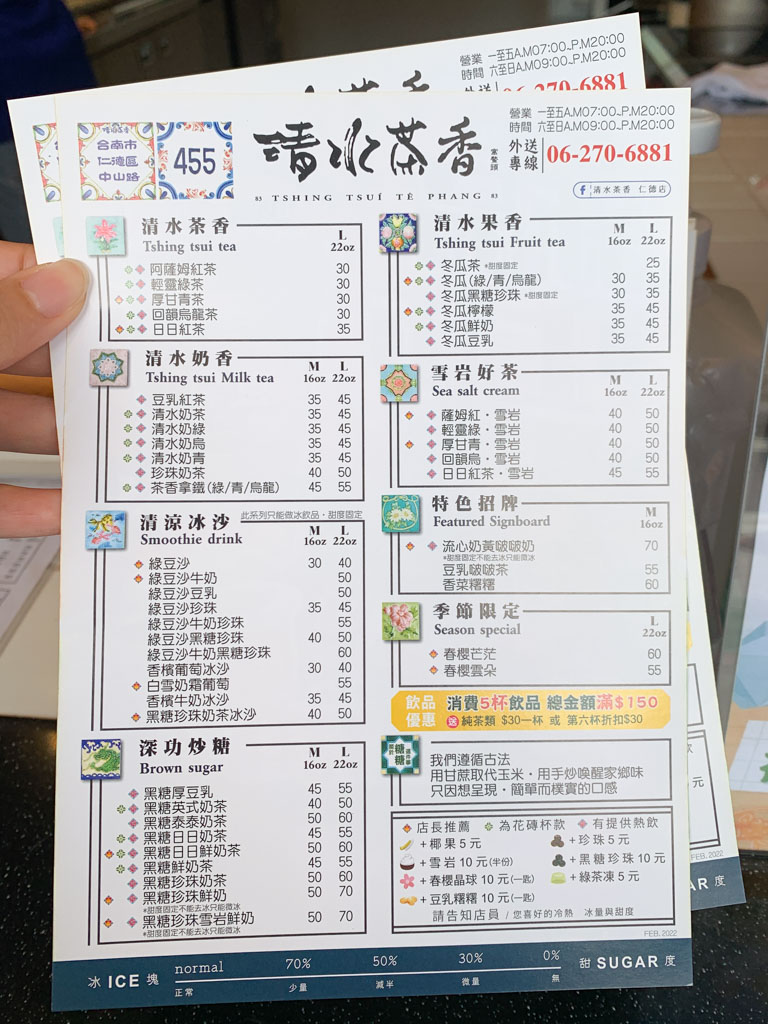 營業 一至五A.M07:00~P.M20:00
時間 六至日A.M09:00~P.M20:00
06-270-6881
台南市
仁德區
中山路
455
清水茶香
常餐頭
83 TSHING TSUÍ TÊ PHANG 83
營業 一至五A.M07:00~P.M20:00
時間 六至日A.M09:00~P.M20:00
外送
專線 06-270-6881
清水茶香 仁德店
清水茶香
Tshing tsui tea
L
22oz
阿薩姆紅茶 30
輕靈綠茶 30
厚甘青茶 30
回韻烏龍茶 30
日日紅茶 35
清水奶香
Tshing tsui Milk tea
M L
16oz 22oz
豆乳紅茶 35 45
清水奶茶 35 45
清水奶綠 35 45
清水奶烏 35 45
清水奶青 35 45
珍珠奶茶 40 50
茶香拿鐵(綠/青/烏龍) 45 55
清涼冰沙 此系列只能做冰飲品,甜度固定
Smoothie drink
M L
16oz 22oz
綠豆沙 30 40
綠豆沙牛奶 50
綠豆沙豆乳 50
綠豆沙珍珠 35 45
綠豆沙牛奶珍珠 55
綠豆沙黑糖珍珠 40 50
綠豆沙牛奶黑糖珍珠 60
香檳葡萄冰沙 30 40
白雪奶霜葡萄 55
香檳牛奶冰沙 35 45
黑糖珍珠奶茶冰沙 40 50
深功炒糖
Brown sugar
M L
16oz 22oz
黑糖厚豆乳 45 55
黑糖英式奶茶 40 50
黑糖泰泰奶茶 50 60
黑糖日日奶茶 45 55
黑糖日日鮮奶茶 50 60
黑糖鮮奶茶 45 55
黑糖珍珠奶茶 50 60
黑糖珍珠鮮奶 50 70
*甜度固定不能去冰只能微冰
黑糖珍珠雪岩鮮奶 50 70
*甜度固定不能去冰只能微冰
清水果香
Tshing tsui Fruit tea
M L
16oz 22oz
冬瓜茶 *甜度固定 25
冬瓜(綠/青/烏龍) 30 35
冬瓜黑糖珍珠 *甜度固定 30 35
冬瓜檸檬 35 45
冬瓜鮮奶 35 45
冬瓜豆乳 35 45
雪岩好茶
Sea salt cream
M L
16oz 22oz
薩姆紅·雪岩 40 50
輕靈綠·雪岩 40 50
厚甘青·雪岩 40 50
回韻烏·雪岩 40 50
日日紅茶·雪岩 45 55
特色招牌
Featured Signboard
M
16oz
流心奶黃啵啵奶 70
*甜度固定不能去冰只能微冰
豆乳啵啵茶 55
香菜糬糬 60
季節限定
Season special
L
22oz
春櫻芒茫 60
春櫻雲朵 55
飲品
優惠
消費5杯飲品 總金額滿$150
送 純茶類 $30一杯 或 第六杯折扣$30
糖
糖
我們遵循古法
用甘蔗取代玉米,用手炒喚醒家鄉味
只因想呈現,簡單而樸實的口感
店長推薦 為花磚杯款 有提供熱飲
+椰果 5 元 +珍珠 5 元
+雪岩 10 元(半份) +黑糖珍珠 10 元
+春櫻晶球 10 元(一匙) +綠茶凍 5 元
+豆乳糬糬 10 元(一匙)
請告知店員 / 您喜好的冷熱 冰量與甜度
FEB, 2022
FEB, 2022
冰 ICE 塊
normal 70% 50% 30% 0%
正常 少量 減半 微量 無
甜 SUGAR 度
AR 度
元